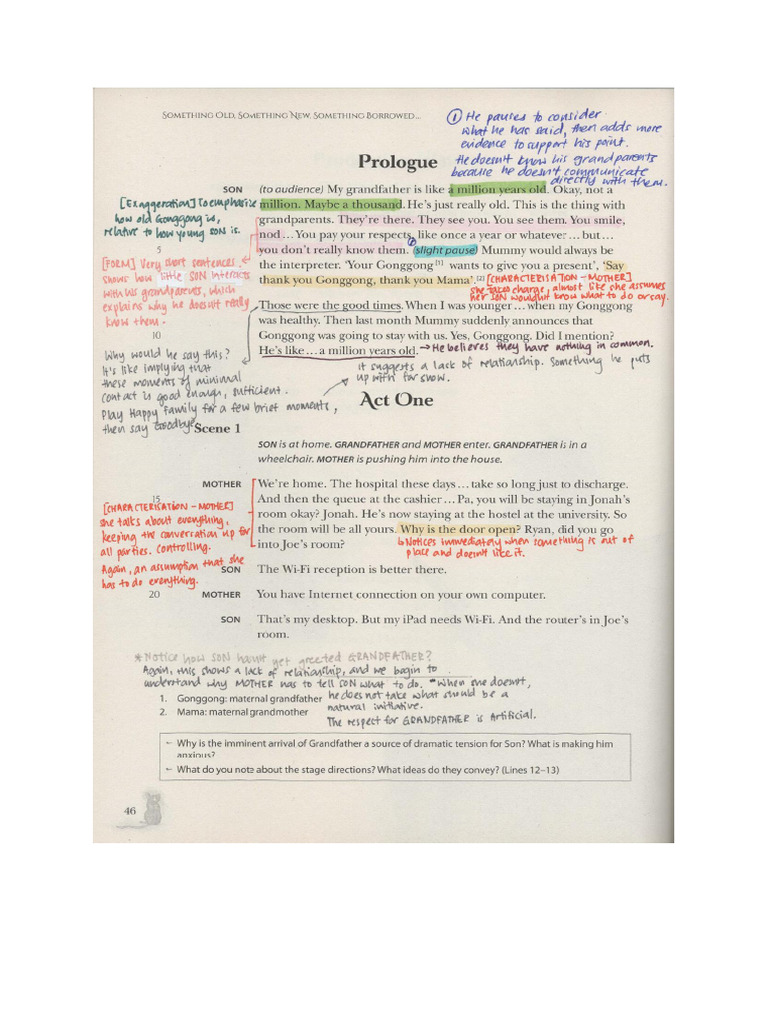 SOMETHING OLD, SOMETHING NEW, SOMETHING BORROWED...
① He pauses to consider
what he has said, then adds more
evidence to support his point.
He doesn't know his grandparents
because he doesn't communicate
directly with them.
Prologue
SON (to audience) My grandfather is like a million years old. Okay, not a
million. Maybe a thousand. He's just really old. This is the thing with
grandparents. They're there. They see you. You see them. You smile,
5 nod... You pay your respects, like once a year or whatever... but...
you don't really know them. ① (slight pause) Mummy would always be
the interpreter. 'Your Gonggong [1] wants to give you a present', 'Say
thank you Gonggong, thank you Mama'. [2]
[Exaggeration] To emphasise
how old Gonggong is,
relative to how young SON is.
[FORM] Very short sentences.
shows how little SON interacts
with his grandparents, which
explains why he doesn't really
know them.
[CHARACTERISATION - MOTHER]
she take charge, almost like she assumes
her son wouldn't know what to do or say.
Those were the good times. When I was younger... when my Gonggong
was healthy. Then last month Mummy suddenly announces that
10 Gonggong was going to stay with us. Yes, Gonggong. Did I mention?
He's like... a million years old. → He believes they have nothing in common.
it suggests a lack of relationship. Something he puts
up with for show.
Why would he say this?
It's like implying that
these moments of minimal
contact is good enough, sufficient.
Play Happy Family for a few brief moments,
then say goodbye.
Act One
Scene 1
SON is at home. GRANDFATHER and MOTHER enter. GRANDFATHER is in a
wheelchair. MOTHER is pushing him into the house.
MOTHER We're home. The hospital these days... take so long just to discharge.
15 And then the queue at the cashier... Pa, you will be staying in Jonah's
room okay? Jonah. He's now staying at the hostel at the university. So
the room will be all yours. Why is the door open? Ryan, did you go
into Joe's room?
↳ Notices immediately when something is out of
place and doesn't like it.
[CHARACTERISATION - MOTHER]
she talks about everything,
keeping the conversation up for
all parties. Controlling.
Again, an assumption that she
has to do everything.
SON The Wi-Fi reception is better there.
20 MOTHER You have Internet connection on your own computer.
SON That's my desktop. But my iPad needs Wi-Fi. And the router's in Joe's
room.
*Notice how SON hasn't yet greeted GRANDFATHER?
Again, this shows a lack of relationship, and we begin to
understand why MOTHER has to tell SON what to do. *When she doesn't,
he does not take what should be a
natural initiative.
The respect for GRANDFATHER is Artificial.
1. Gonggong: maternal grandfather
2. Mama: maternal grandmother
– Why is the imminent arrival of Grandfather a source of dramatic tension for Son? What is making him
anxious?
– What do you note about the stage directions? What ideas do they convey? (Lines 12–13)
46